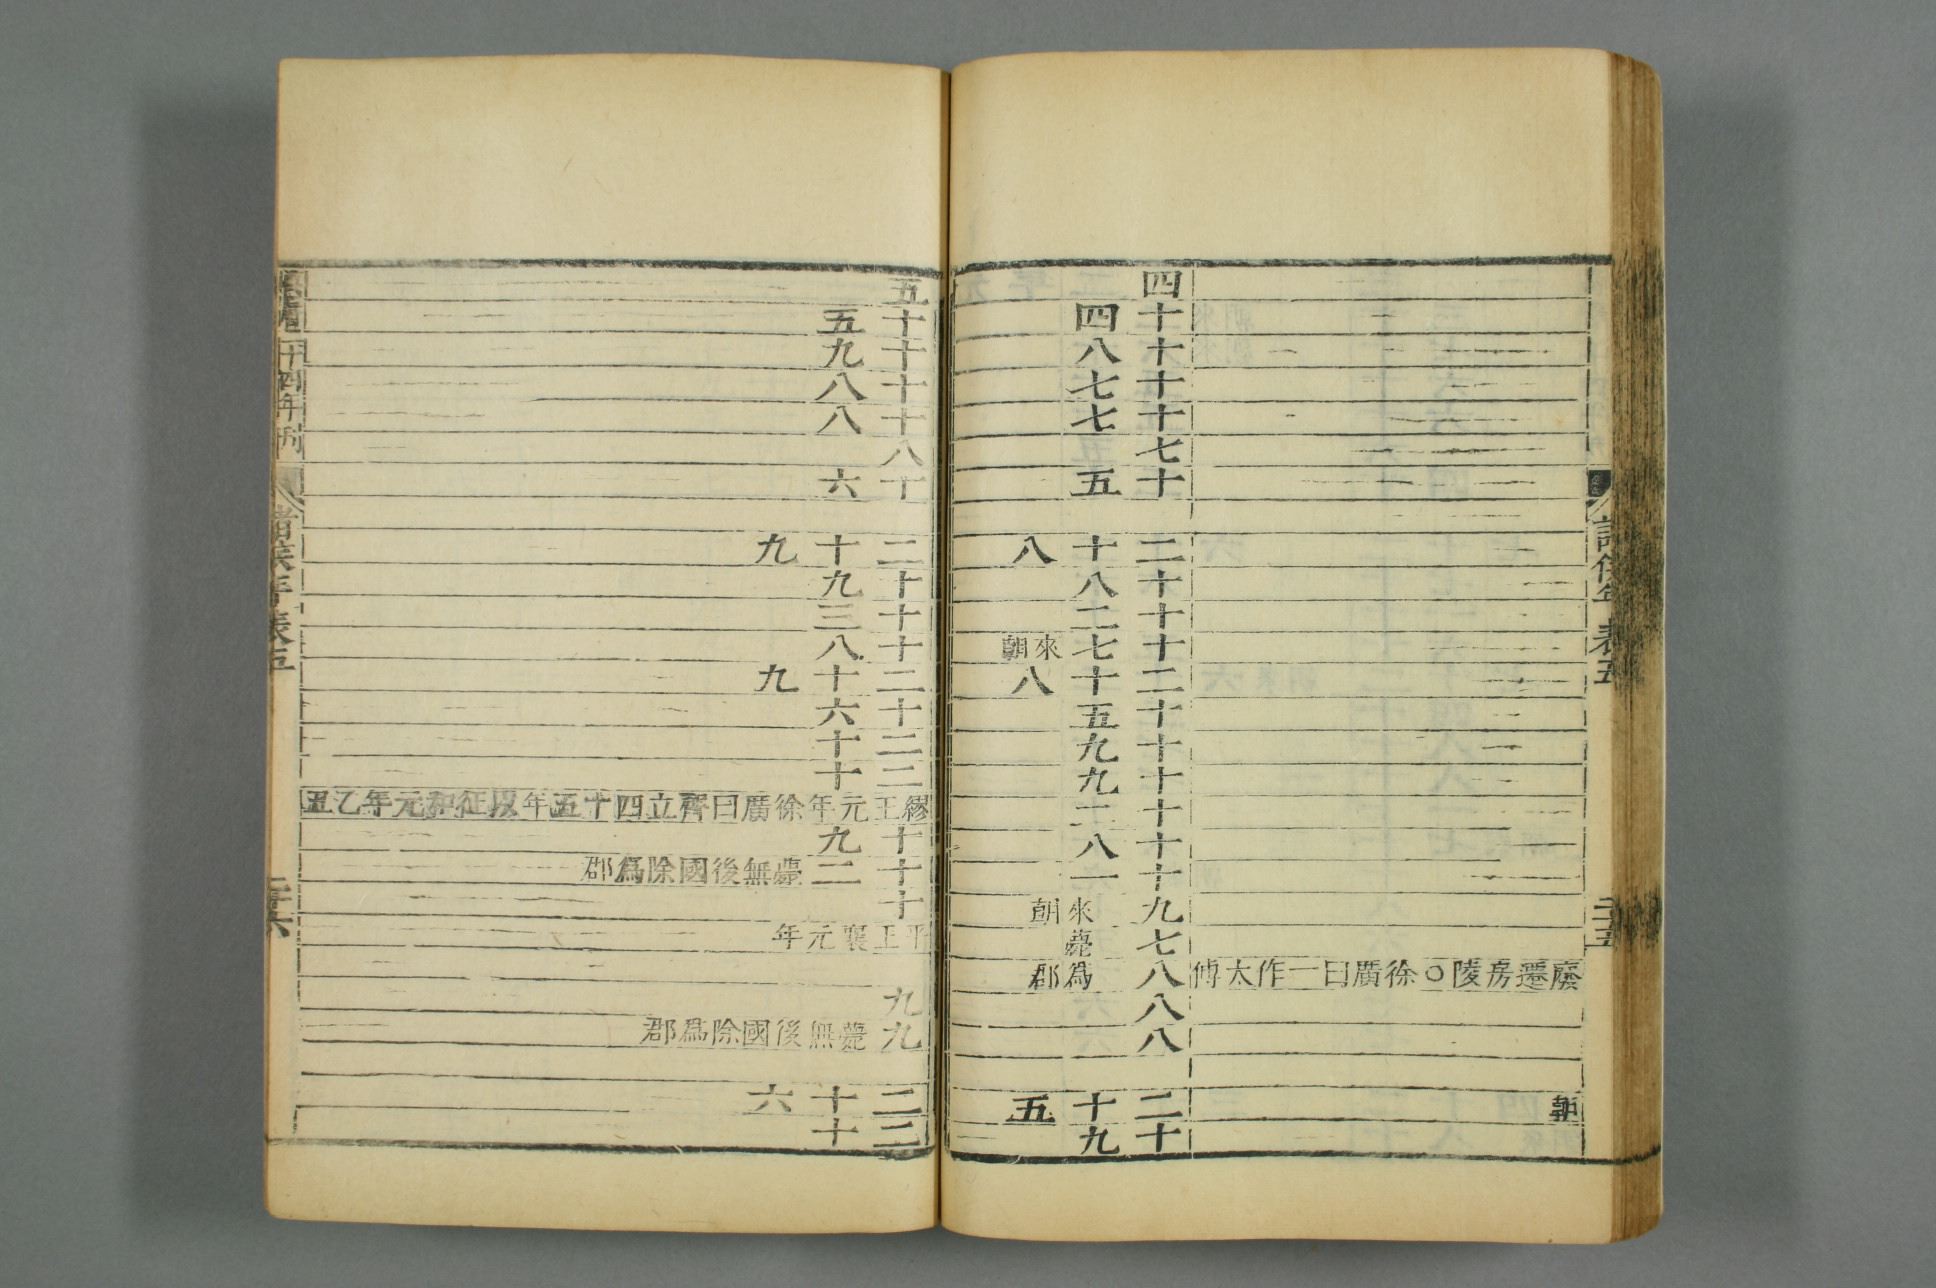 諸侯年表五
二十五
廢遷房陵○徐廣曰一作太傅
朝
四
十四
十八
十七
十七
七
十五
二十八
十八
十二
十七來朝
二十八
十五
十九
十九
十二
十八
十一
九來朝
七薨
八爲郡
八
八
二十五
十九
五
十五
十九
十八
十八
八
十六
二十九
十九
十三
十八
二十九
十六
二十
二十
繆王元年徐廣曰齊立四十五年以征和元年乙丑
十九
十二薨無後國除爲郡
十
平王襄元年
九
九薨無後國除爲郡
二十六
二十
十四年刊
諸侯年表五
二十六